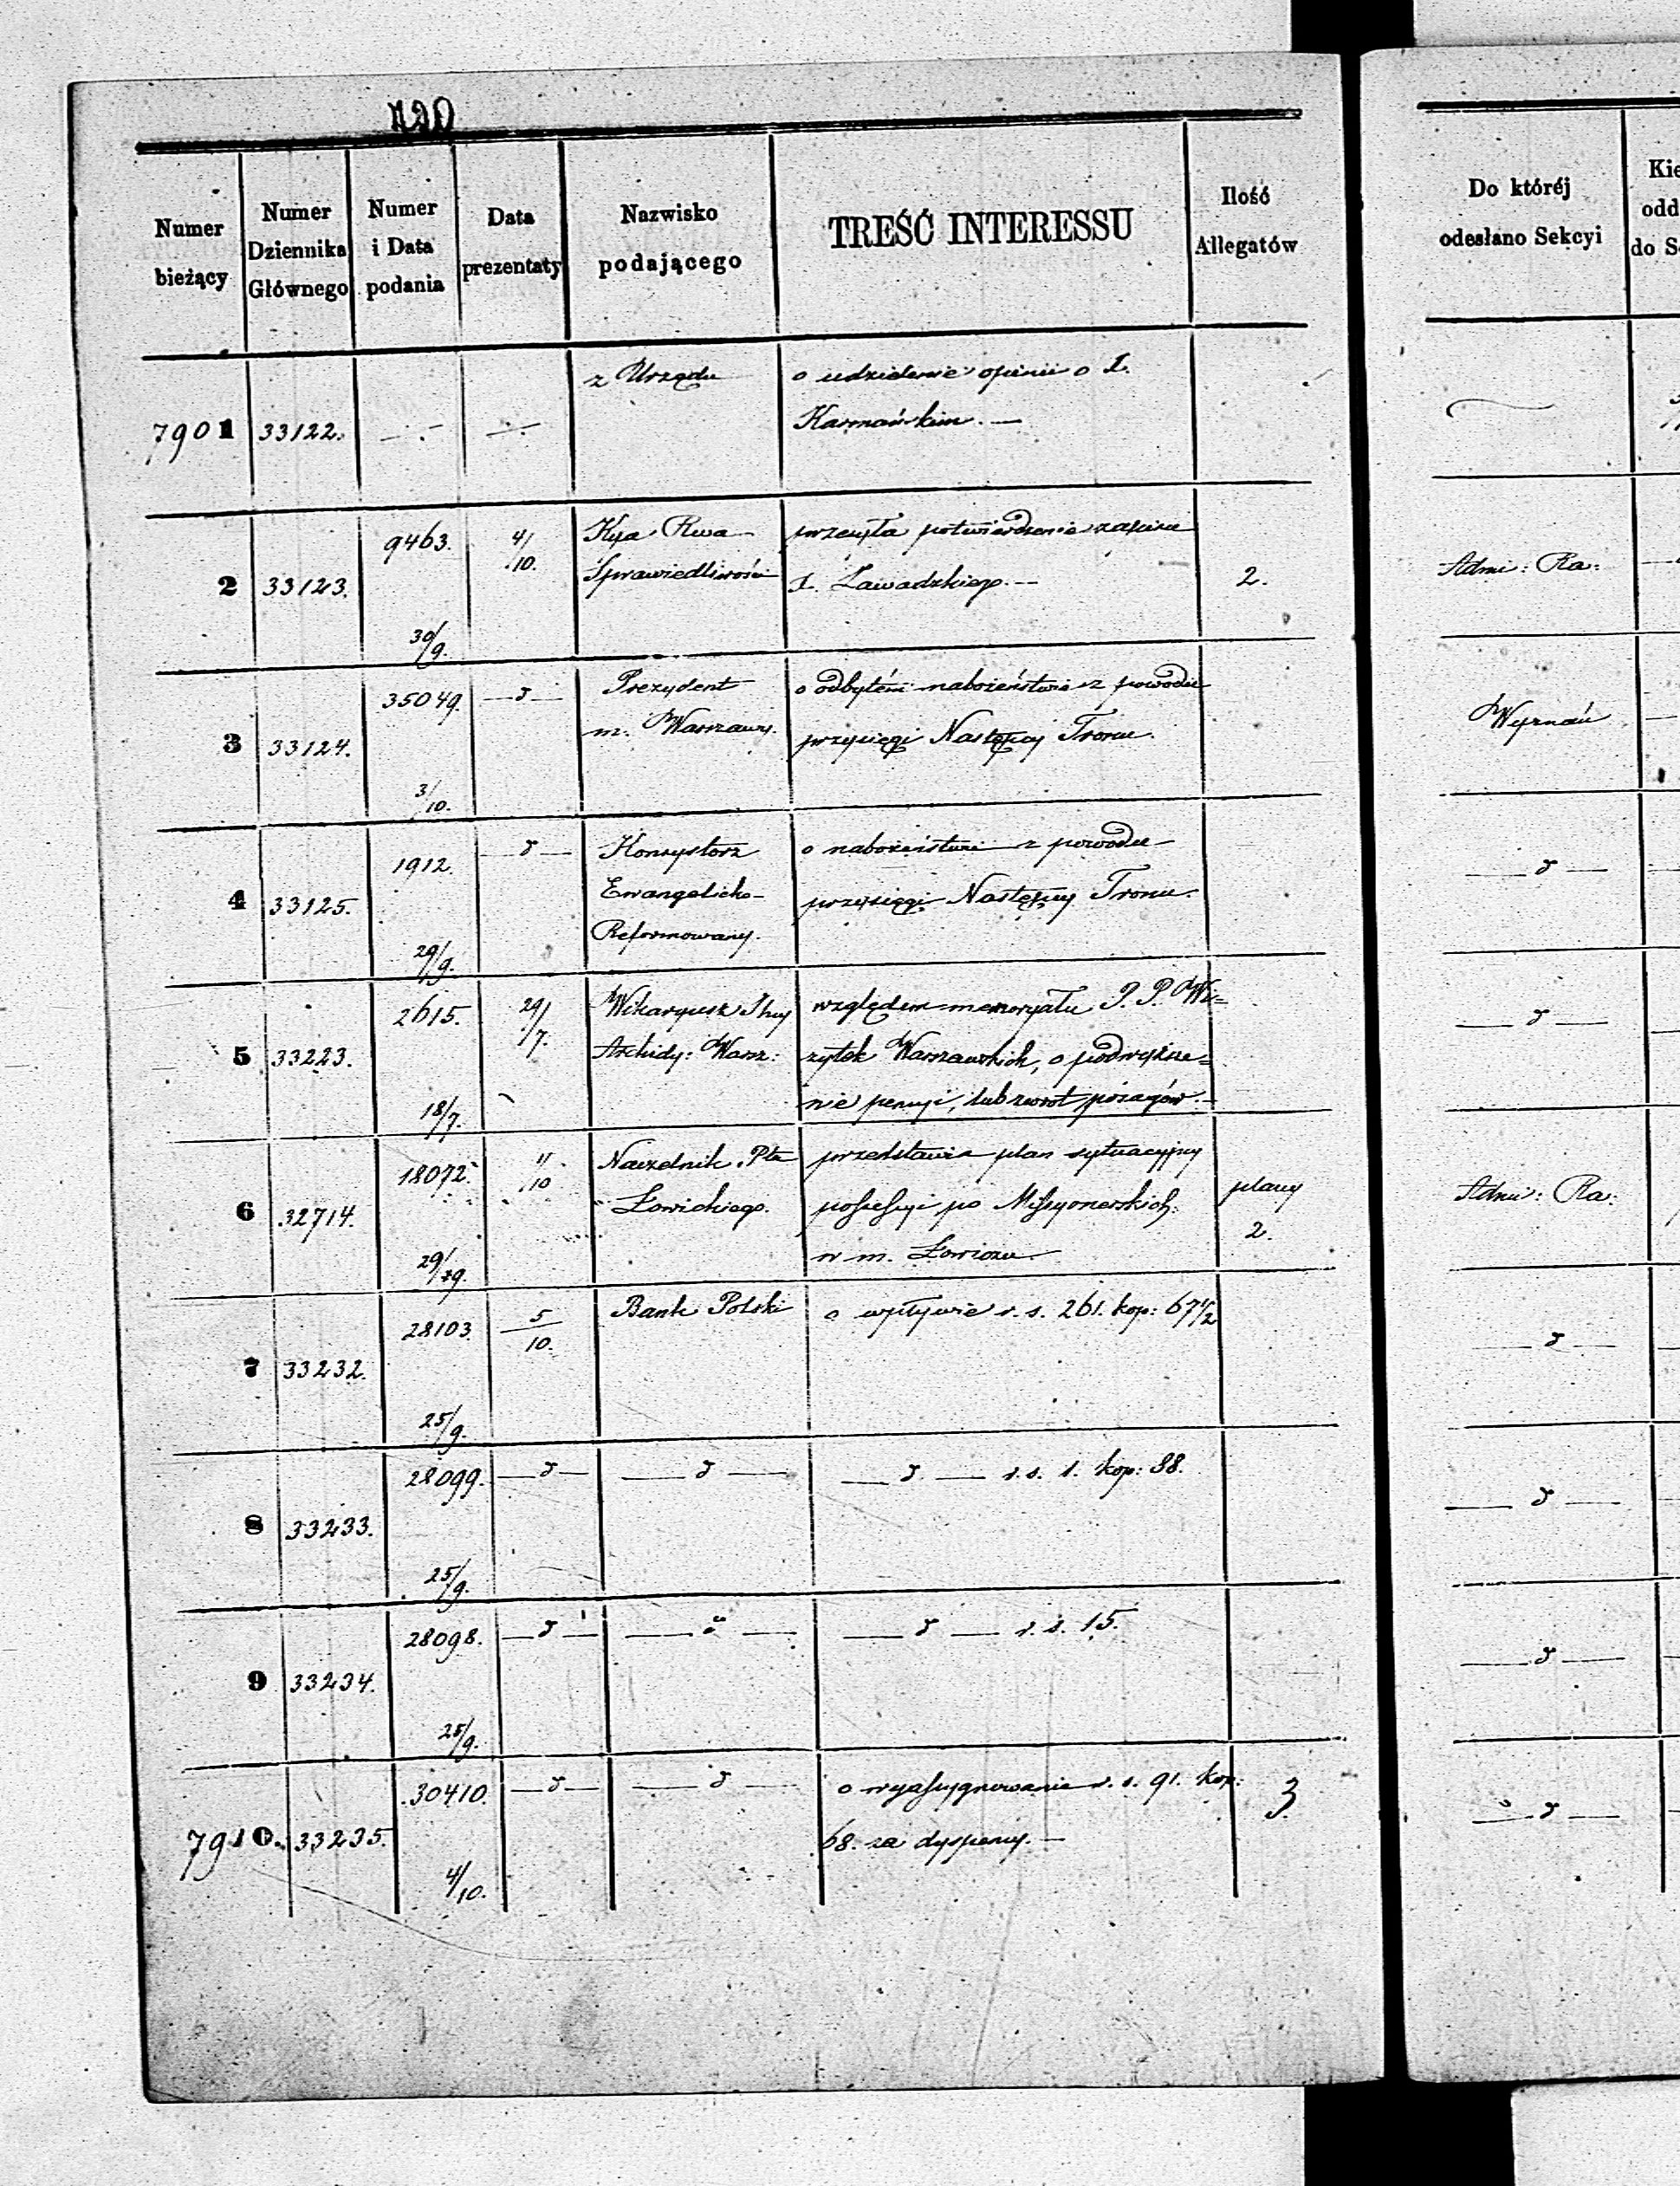 Numer bieżący
Numer Dziennika Głównego
Numer i Data podania
Data prezentaty
Nazwisko podającego
TREŚĆ INTERESSU
Ilość Allegatów
Do któréj odesłano Sekcyi
Kie
odd
do S
7901 33122. z Urzędu o udzielenie opinii o X.
Karmańskim. —
2 33123. 9463. 30/9. 4/10. Kya Rwa przesyła potwierdzenie zapisu 2. Admi: Ra:
Sprawiedliwości X. Zawadzkiego. —
3 33124. 35049. 3/10. — d — Prezydent o odbytém nabożeństwie z powodu Wyznań
m. Warszawy. przysięgi Następcy Tronu.
4 33125. 1912. 29/9. — d — Konsystorz o nabożeństwie z powodu — d —
Ewangelicko- przysięgi Następcy Tronu.
Reformowany.
5 33223. 2615. 18/7. 29/7. Wikaryusz względem memoryału P. P. Wi= — d —
Archidy: Warsz: zytek Warszawskich, o podwyższe=
nie pensyi, lub zwrot posagów. —
6 32714. 18072. 29/9. 11/10 Naczelnik Ptu przedstawia plan sytuacyjny plany Admi: Ra:
Łowickiego. possessyi po Missyonerskich 2.
w m. Łowiczu —
7 33232. 28103. 25/9. 5/10. Bank Polski o wpływie r. s. 261. kop: 67 1/2 — d —
8 33233. 28099. 25/9. — d — — d — — d — r. s. 1. kop: 88. — d —
9 33234. 28098. 25/9. — d — — d — — d — r. s. 15. — d —
7910. 33235. 30410. 4/10. — d — — d — o wyassygnowanie r. s. 91. kop: 3 — d —
68. za dyspensy. —